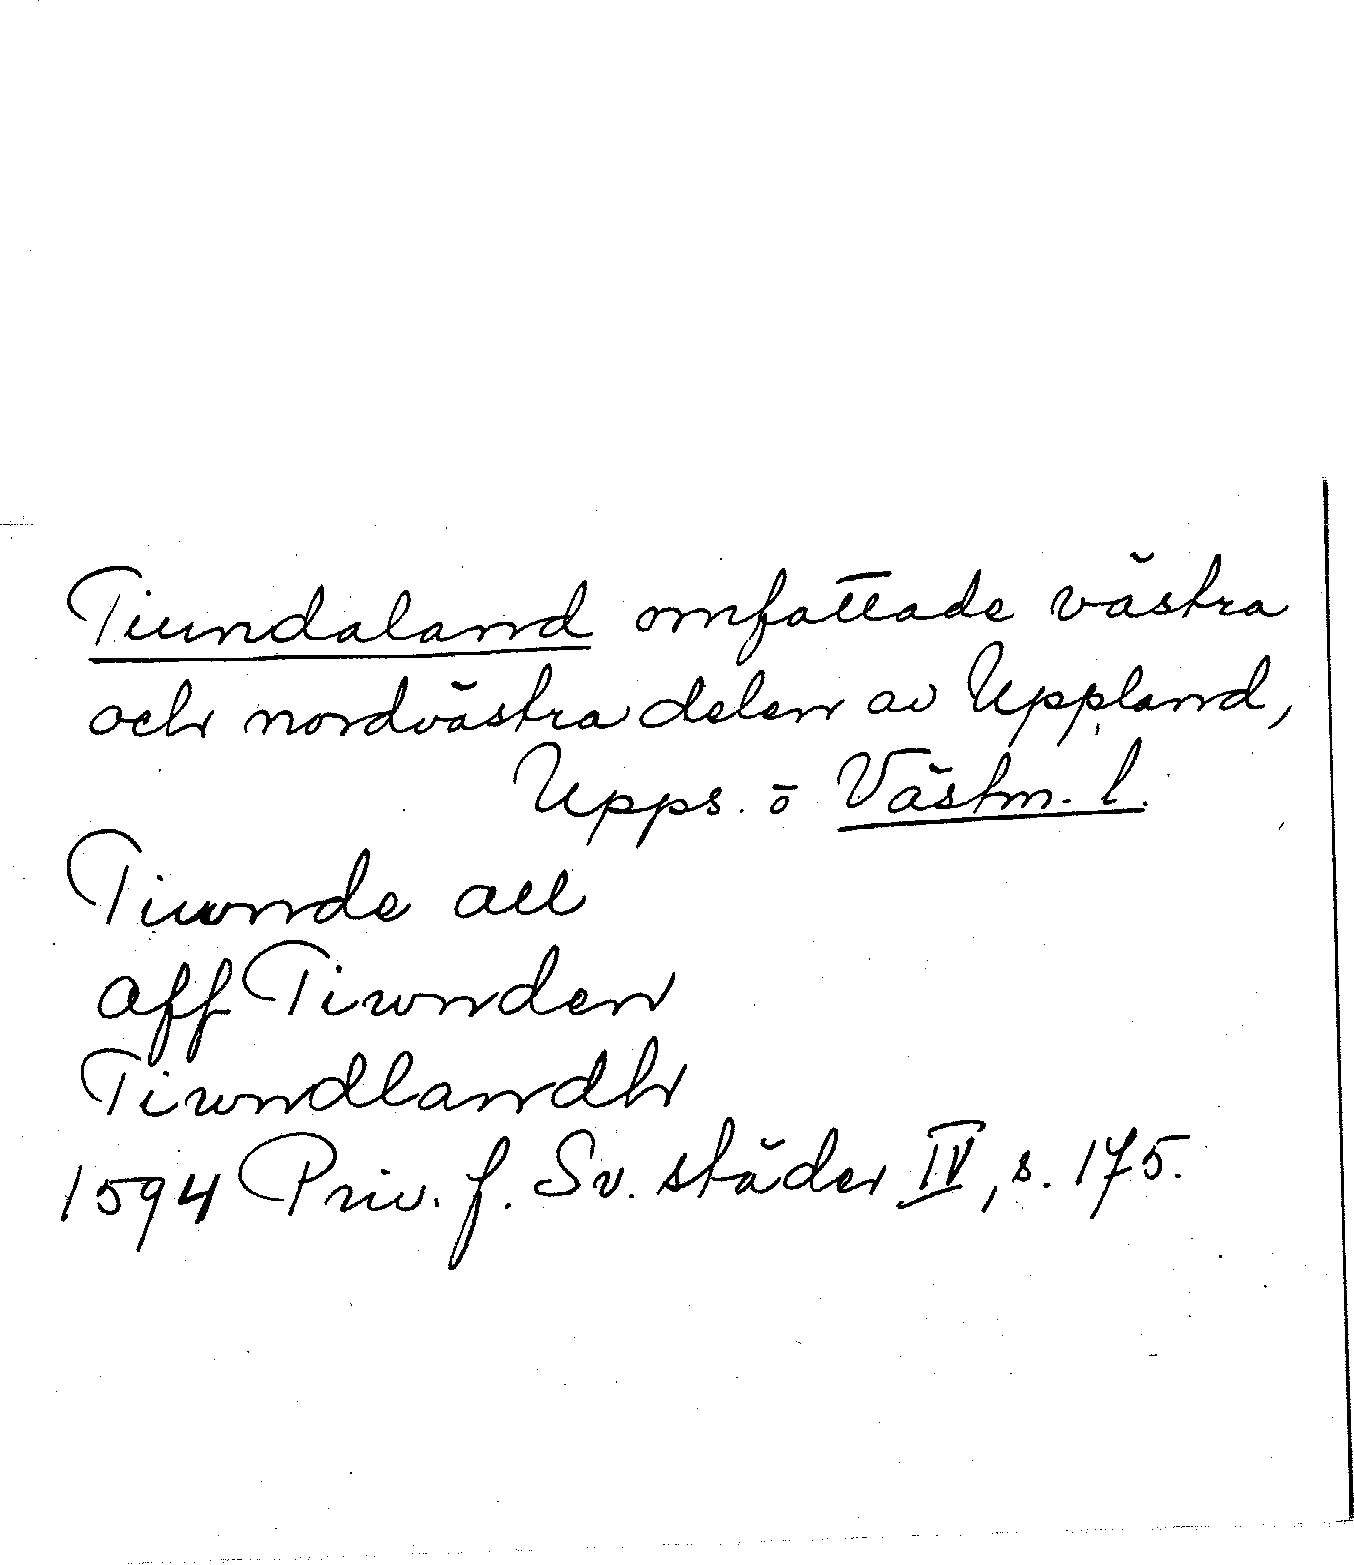 Tiundaland omfattade västra
och nordvästra delen av Uppland,
Upps. o Västm. l.
Tiwnde all
aff Tiwnden
Tiwndlandh
1594 Priv. f. Sv. städer IV, s. 175.